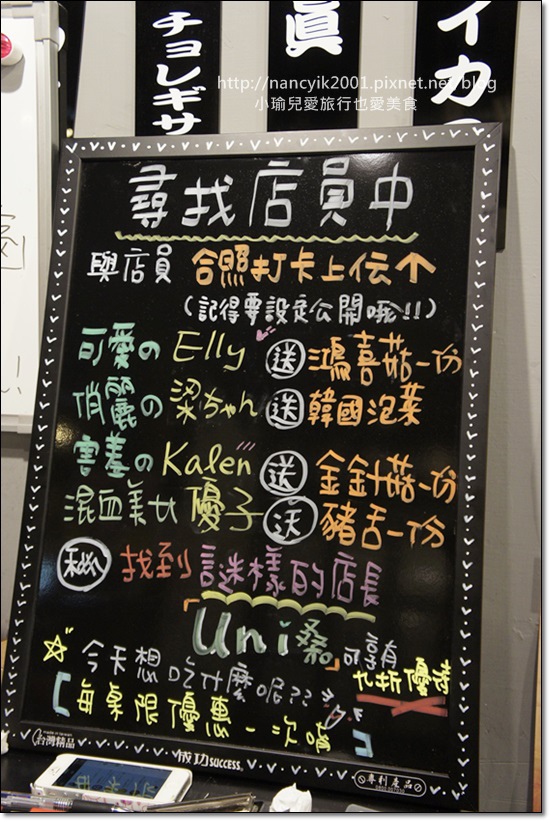 チョレギサ
眞
イカ
http://nancyik2001.pixnet.net/blog
小瑜兒愛旅行也愛美食
尋找店員中
與店員 合照打卡上伝↑
(記得要設定公開哦!!)
可愛の Elly 送 鴻喜菇一份
俏麗の 梁ちゃん 送 韓國泡菜
害羞の Kalen 送 金針菇一份
混血美女 優子 送 豬舌一份
秘 找到 謎樣的店長
「Uni桑」可享有
九折優待
☆ 今天想吃什麼呢??
【每桌限優惠一次唷】
台灣精品
成功 SUCCESS
專利產品